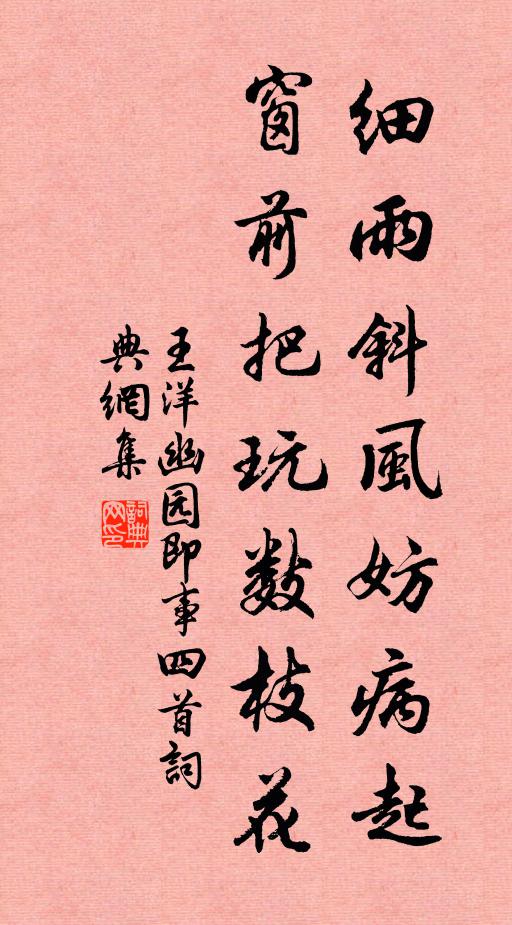 細雨斜風妨病起
窗前把玩数枝花
王洋幽园即事四首詞
典網集
詞典
网印